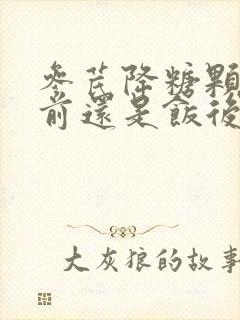 参芪降糖顆
前還是飯後
大灰狼的故事